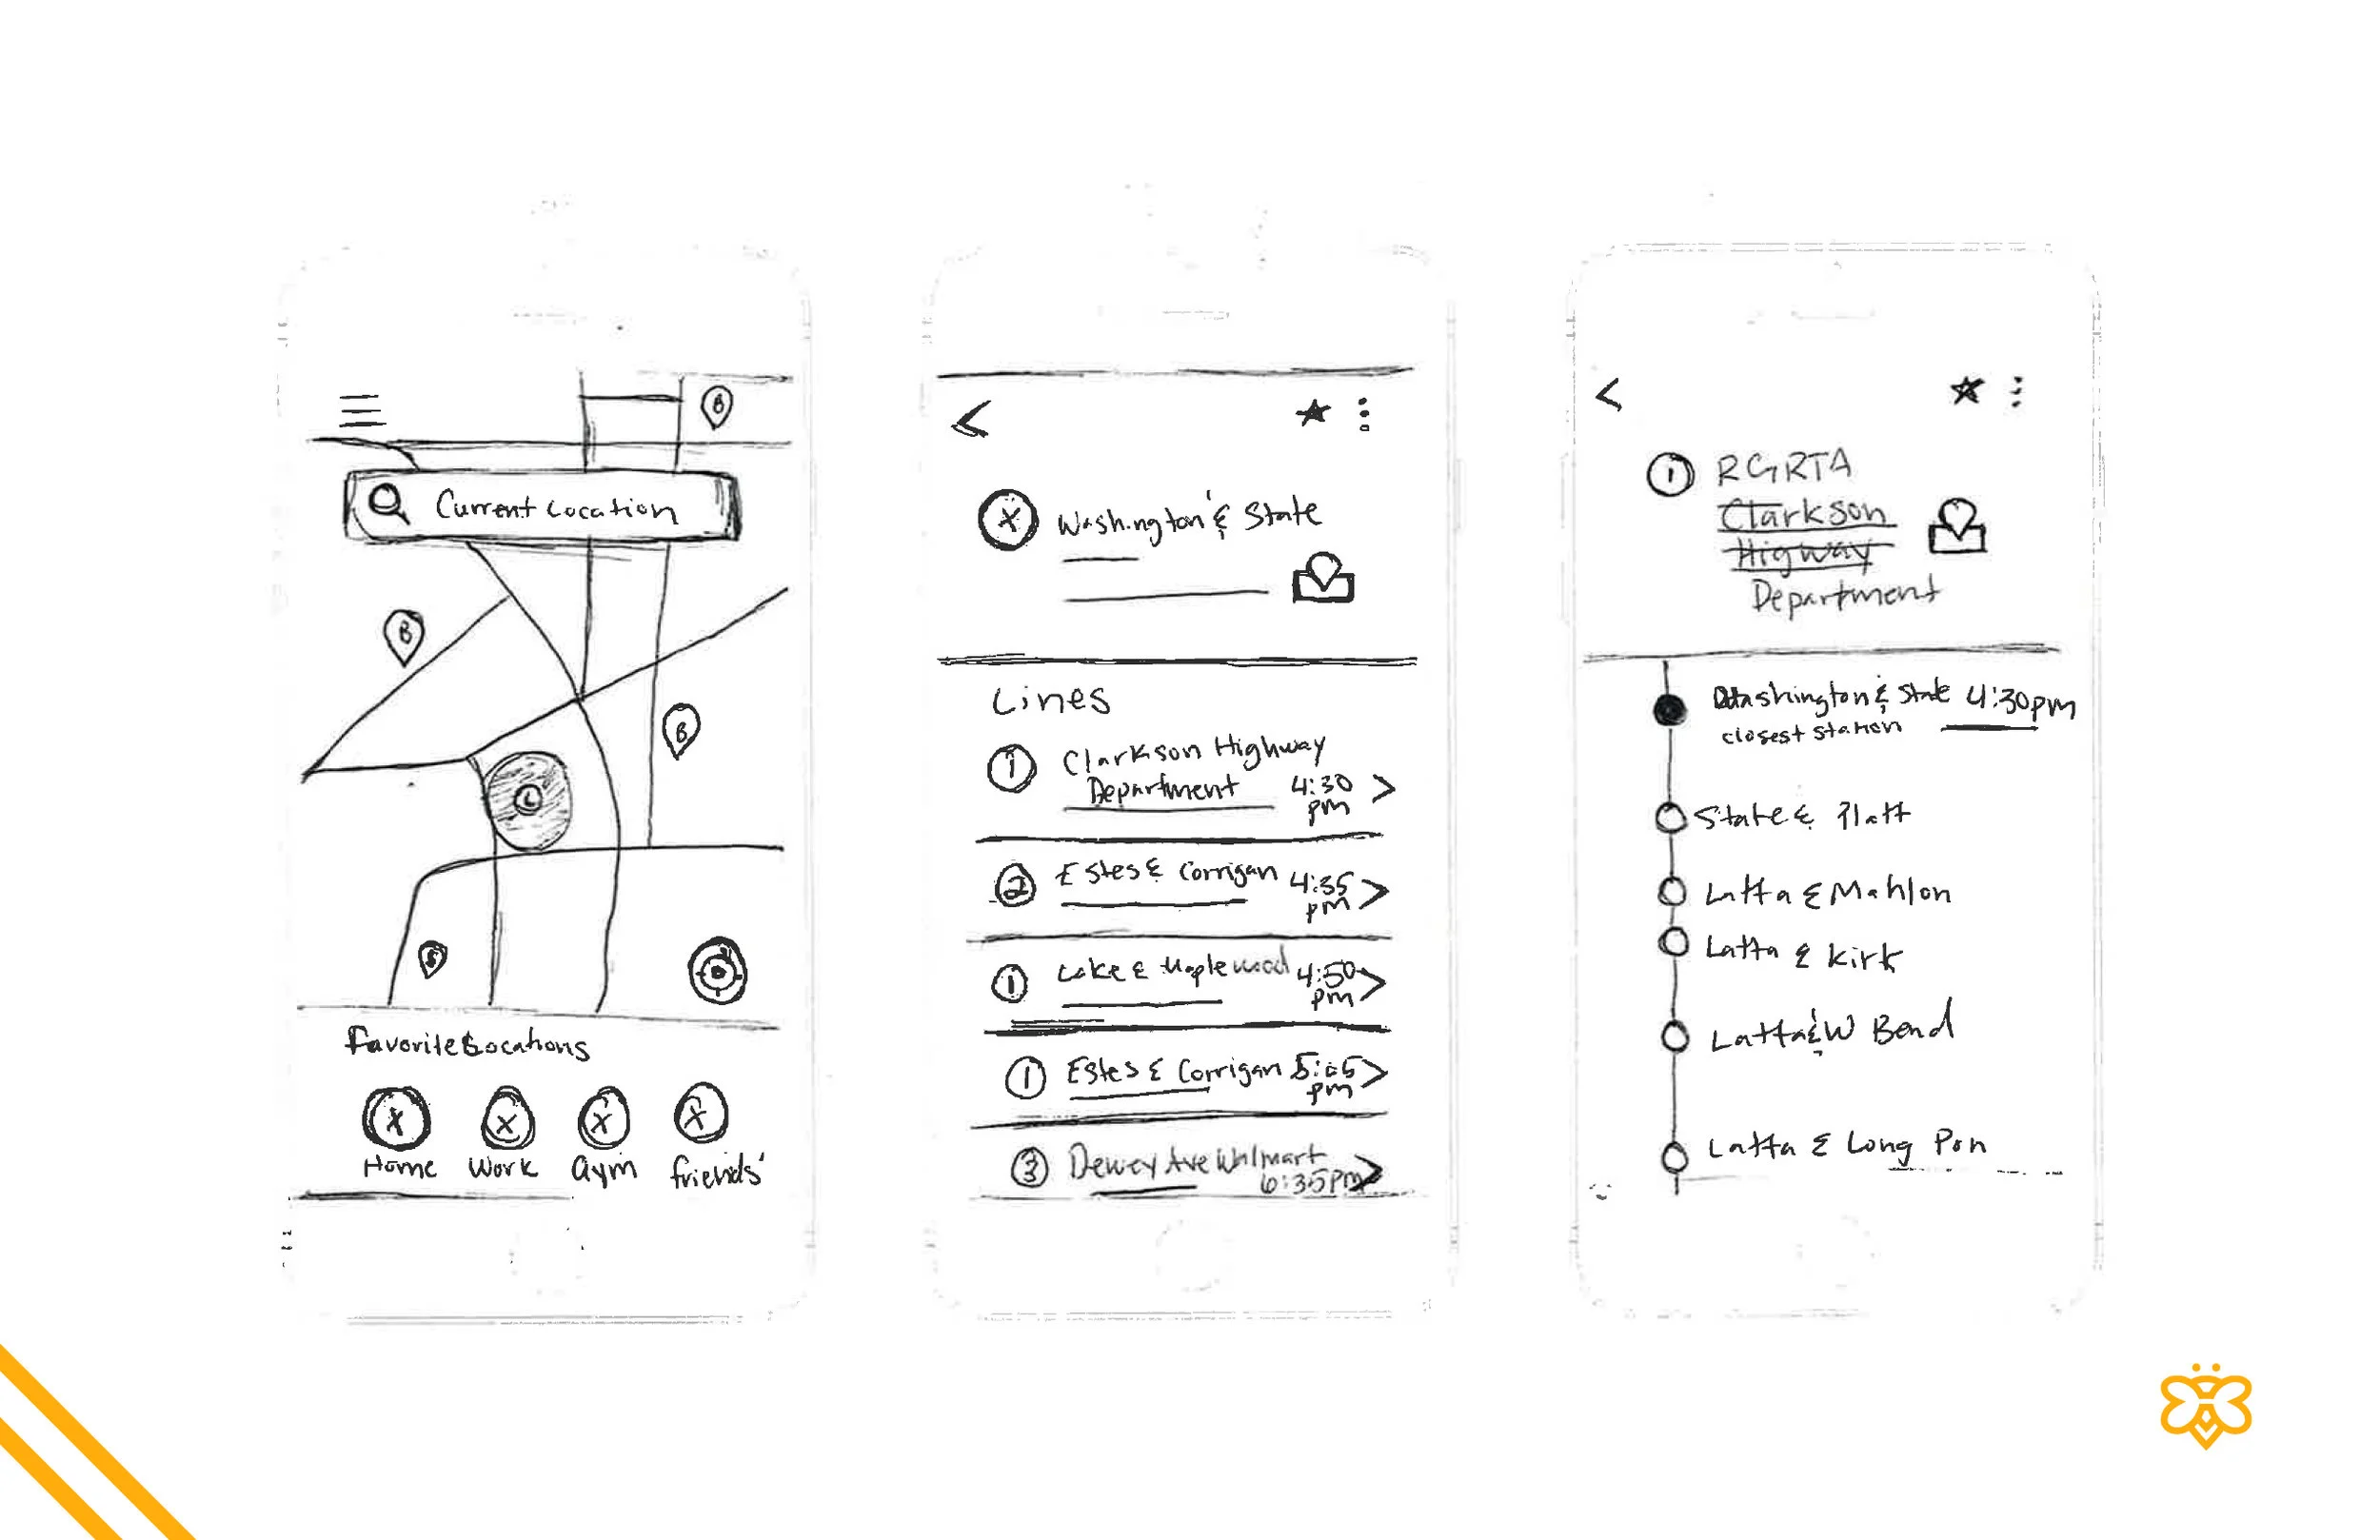 B
Current Location
B
B
Favorite Locations
X
X
X
X
Home
Work
Gym
friends'
X
Washington & State
Lines
1
Clarkson Highway
Department
4:30
pm
2
Estes & Corrigan
4:35
pm
1
Lake & Maplewood
4:50
pm
1
Estes & Corrigan
5:05
pm
3
Dewey Ave Walmart
6:35pm
1
RGRTA
Clarkson
Higway
Department
Washington & State 4:30pm
closest station
State & Platt
Latta & Mahlon
Latta & Kirk
Latta & W Bend
Latta & Long Pon